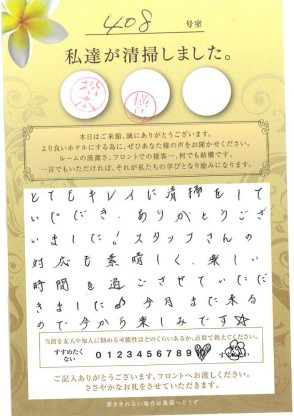 408 号室
私達が清掃しました。
本日はご来館、誠にありがとうございます。
より良いホテルにする為に、ぜひあなた様の声をお聞かせください。
ルームの清潔さ、フロントでの接客…、何でも結構です。
一言でもいただければ、それが私たちの学びとなり励みになります。
とてもキレイに清掃をして
いただき、ありがとうござ
いました!スタッフさんの
対応も素晴しく、楽しい
時間を過ごさせていただ
きました 今月また来る
ので今から楽しみです☆
当館を友人や知人に勧める可能性はどのくらいあるか、点数で教えてください。
すすめたくない 0 1 2 3 4 5 6 7 8 9
ご記入ありがとうございます。フロントへお渡しください。
ささやかなお礼をさせていただきます。
書ききれない場合は裏面へどうぞ